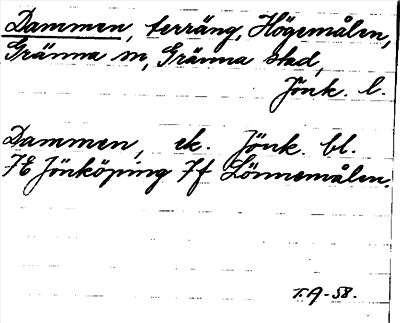 Dammen, terräng, Högemålen,
Gränna sn, Gränna stad,
Jönk. l.
Dammen, ek. Jönk. bl.
7E Jönköping 7f Lönnemålen.
T.A-58.